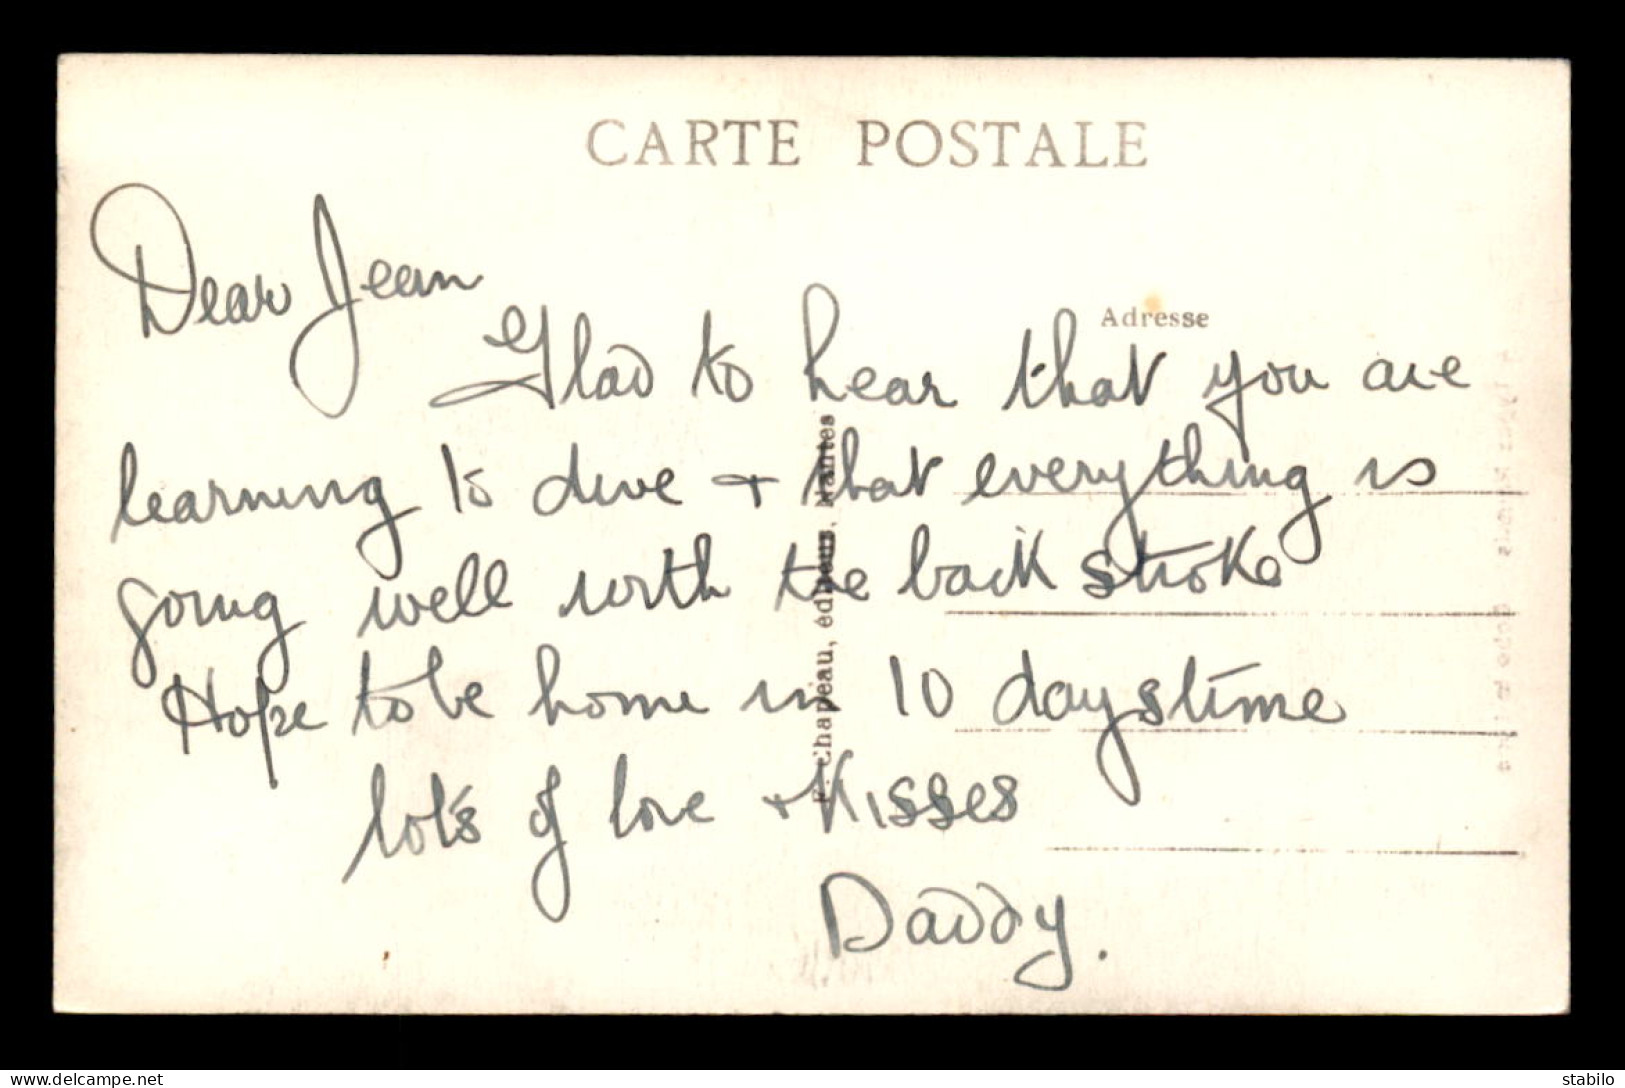 CARTE POSTALE
Dear Jean
Adresse
Glad to hear that you are
learning to dive + that everything is
going well with the back stroke
Hope to be home in 10 days time
lots of love + Kisses
Daddy.
F. Chapeau, éditeur, Nantes
delcampe.net
stabilo